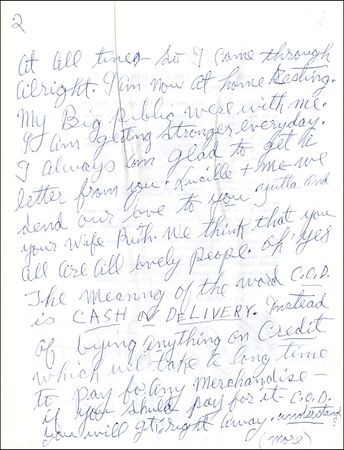 2
At all times - So I came through
alright. I'm now at home Resting.
My Big Public were with me.
I am getting stronger everyday.
I always am glad to get a
letter from you. Lucille + me we
send our love to you, and
your Wife Ruth. We think that you
all are All lovely people. oh yes
The meaning of the word C.O.D.
is CASH ON DELIVERY. Instead
of bying anything on Credit
which will take a long time
to pay for any Merchandise -
if you shuld pay for it C.O.D.
you will git right away. understand?
(more)